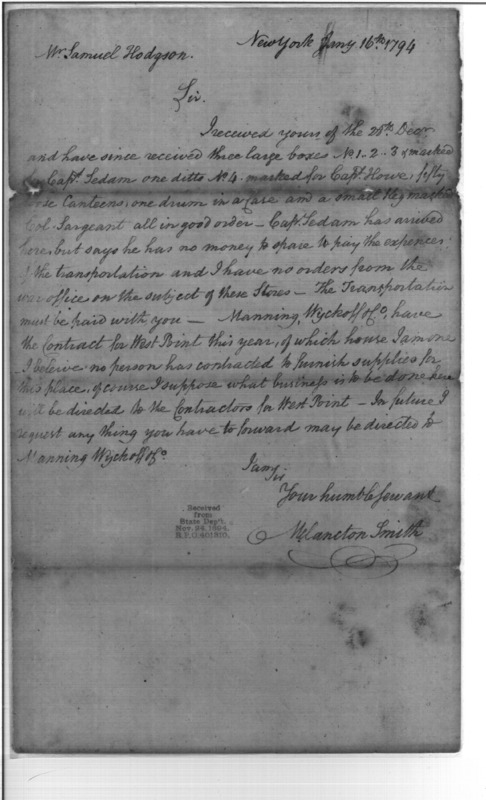 New York Jany 16th 1794
Mr. Samuel Hodgson.
Sir.
I received yours of the 28th Decr
and have since received three large boxes No 1. 2. 3 marked
Capt. Sedam one ditto No 4. marked for Capt. Howe, fifty
Canteens, one drum in a Case and a small Keg marked
Col. Sargeant all in good order – Capt. Sedam has arrived
here, but says he has no money to spare to pay the expences
of the transportation and I have no orders from the
war office on the subject of these Stores – The Transportation
must be paid with you – Manning, Wyckoff & Co, have
the Contract for West Point this year, of which house I am one
I believe no person has contracted to furnish supplies for
this place, of course I suppose what business is to be done here
will be directed to the Contractors for West Point – In future I
request any thing you have to forward may be directed to
Manning Wyckoff & Co
I am
Sir
Your humble Servant
Melancton Smith
Received
from
State Dep't.
Nov. 24, 1894.